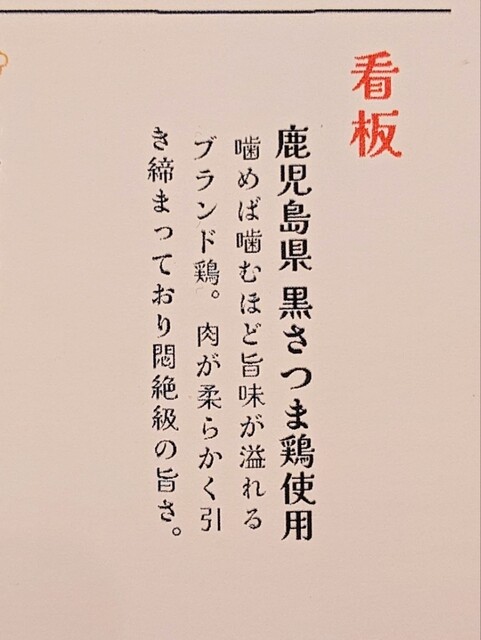 看板
鹿児島県 黒さつま鶏使用
噛めば噛むほど旨味が溢れる
ブランド鶏。肉が柔らかく引
き締まっており悶絶級の旨さ。